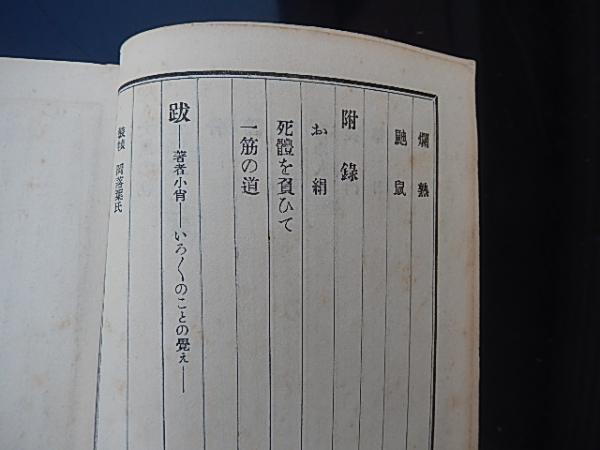 爛熟
鼬鼠
附錄
お絹
死體を負ひて
一筋の道
跋——著者小肖——いろ〳〵のことの覺え——
裝幀 岡落葉氏